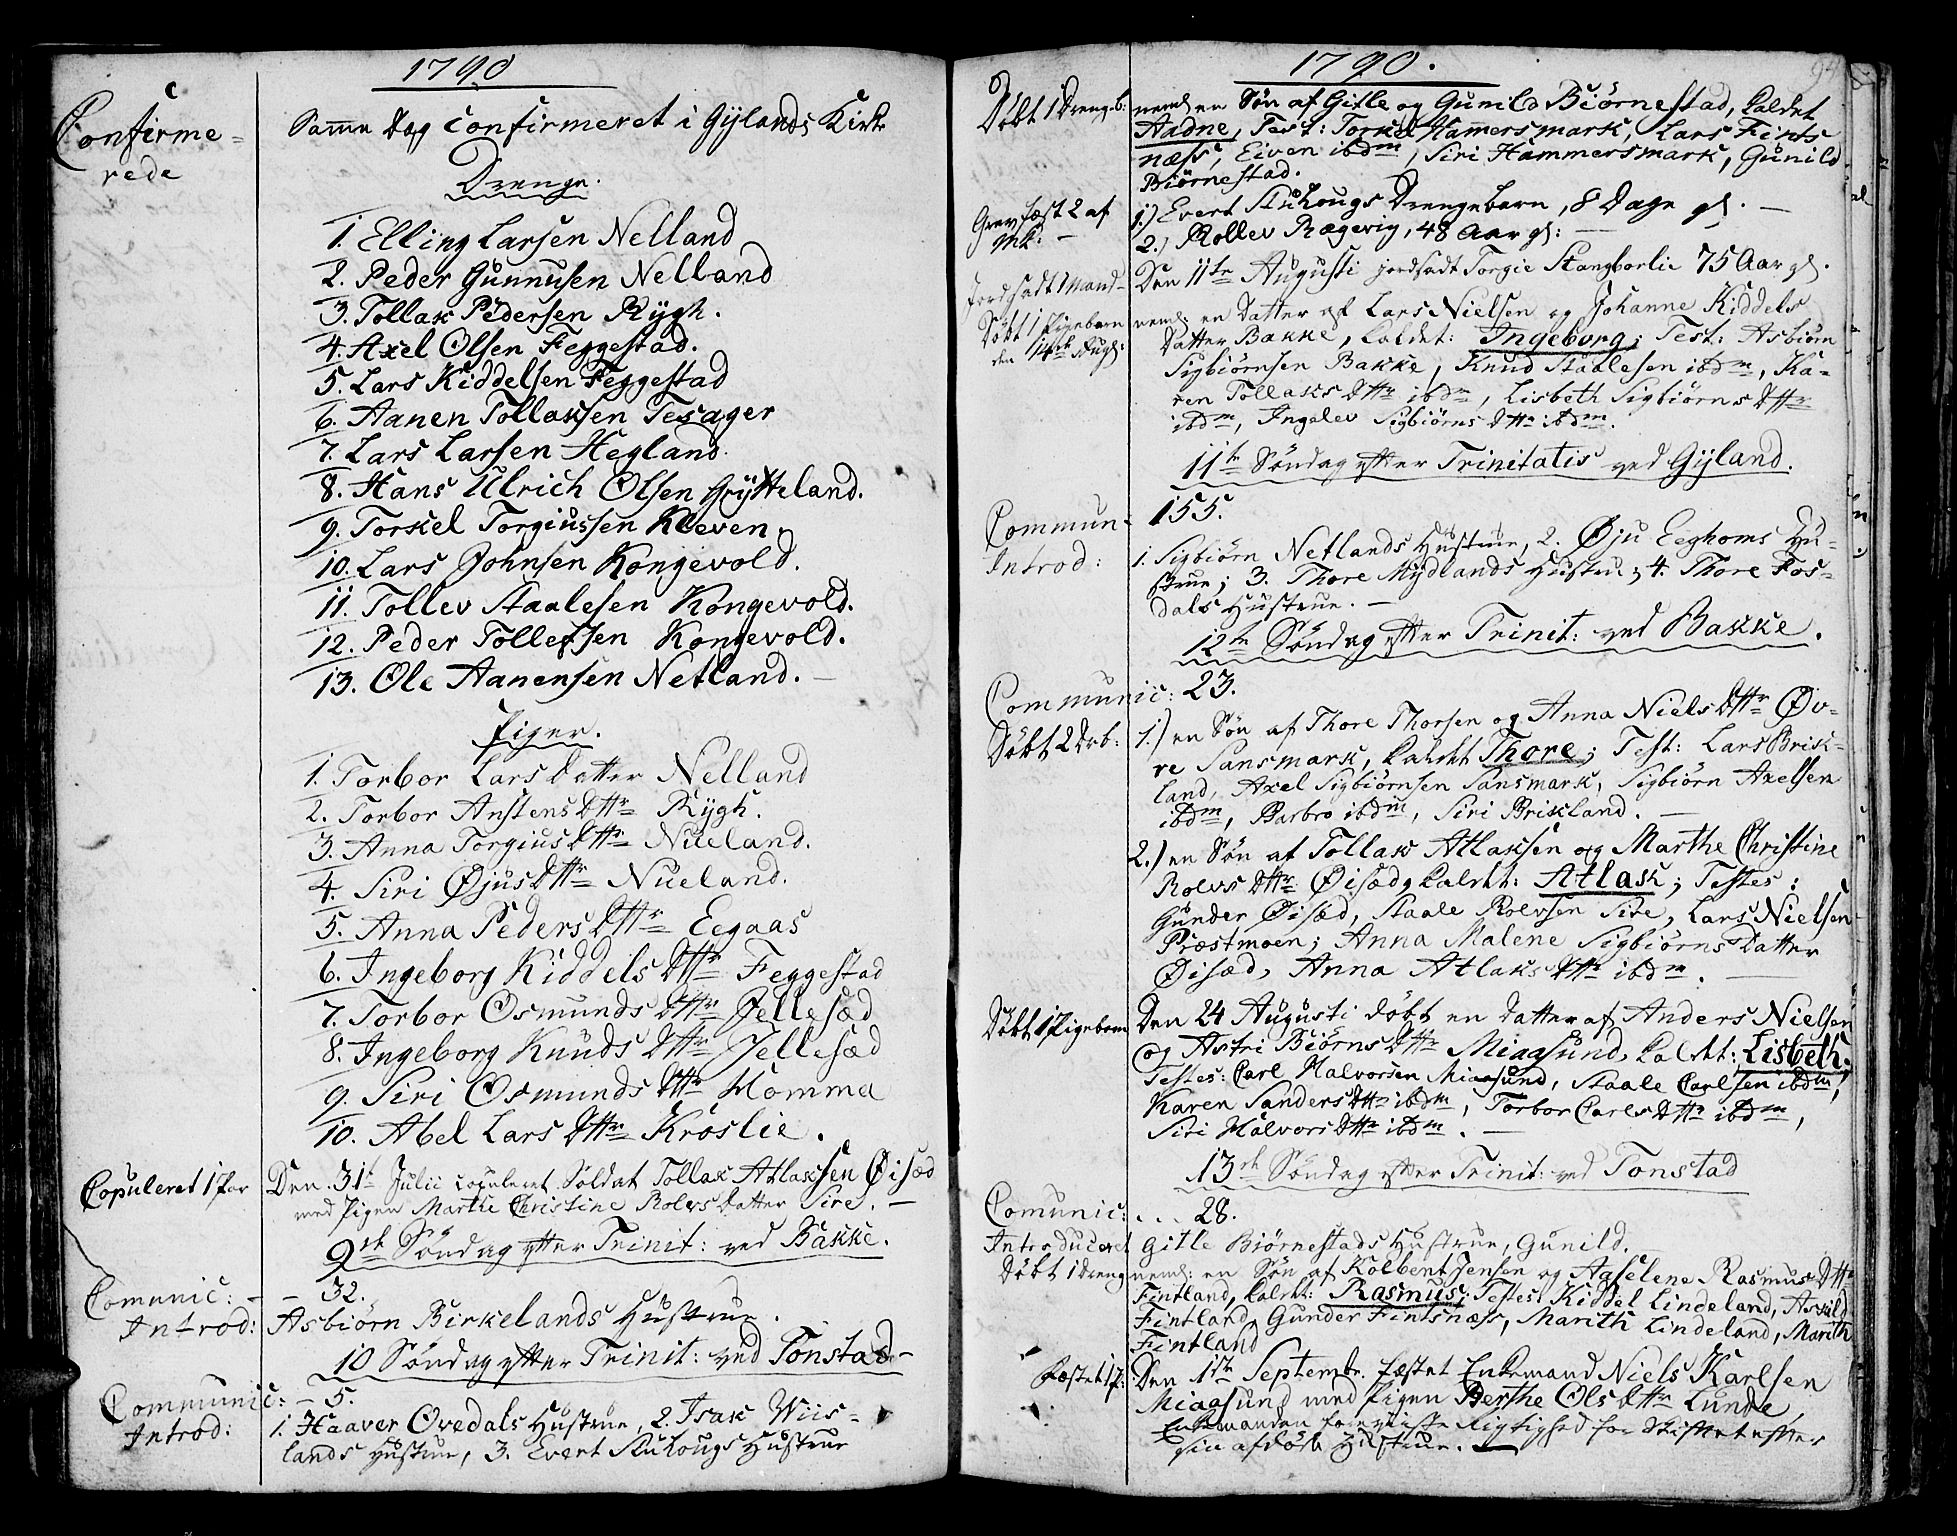 1790
Confirme-
rede
Samme Dag Confirmeret i Gylands Kirke
Drenge.
1. Elling Larsen Nelland
2. Peder Gunnusen Nelland
3. Tollak Pedersen Rygh.
4. Axel Olsen Feggestad.
5. Lars Kiddelsen Feggestad
6. Aanen Tollaksen Tesager
7. Lars Larsen Hegland.
8. Hans Ulrich Olsen Grytteland.
9. Torkel Torgiussen Kleven.
10. Lars Johnsen Kongevold.
11. Tollev Staalesen Kongevold.
12. Peder Tollefsen Kongevold.
13. Ole Aanensen Netland. –
Piger.
1. Torbor Lars Datter Nelland
2. Torbor Anstens Dttr Rygh.
3. Anna Torgius Dttr Nueland.
4. Siri Øjus Dttr Nueland.
5. Anna Peders Dttr Eegaas
6. Ingeborg Kiddels Dttr Feggestad
7. Torbor Osmunds Dttr Jellesæd
8. Ingeborg Knuds Dttr Jellesæd
9. Siri Osmunds Dttr Homma
10. Abel Lars Dttr Krøslie.
Copuleret 1 Par
Den 31t Julii copuleret Soldat Tollak Atlaksen Øisæd
med Pigen Marthe Christine Rolvs Datter Sire. –
9de Søndag efter Trinit: ved Bakke.
Comunic: – – 32.
Introd: Asbiørn Birkelands Hustrue.
10 Søndag efter Trinit: ved Tonstad –
Communic: – 5.
Introd: 1. Haaver Ovedals Hustrue, 2. Isak Wiis-
lands Hustrue, 3. Evert Stuhougs Hustrue
1790.
94
Døbt 1 Drengeb: neml en Søn af Gitle og Gunild Biørnestad, kaldet
Aadne, Test: Torkel Hamersmark, Lars Fints
næss, Eiven ibdm, Siri Hammersmark, Gunild
Biørnestad.
Grevfæst 2 af
Mk: –
1.) Evert Stuhougs Drengebarn, 8 Dage gl. –
2.) Rollev Rægevig, 48 Aar gl: –
Jordsadt 1 Mand – Den 11te Augusti jordsadt Torgie Stangborlie 75 Aar gl.
Døbt 1 Pigebarn
den 14de Aug:
neml: en Datter af Lars Nielsen og Johanne Kiddels
Datter Bakke, kaldet: Ingeborg; Test: Asbiørn
Sigbiørnsen Bakke, Knud Staalesen ibdm, Ka-
ren Tollaks Dttr ibdm, Lisbeth Sigbiørns Dttr
ibdm, Ingelev Sigbiørns Dttr ibdm.
11te Søndag efter Trinitatis ved Gyland.
Commun: 155.
Introd: 1. Sigbiørn Netlands Hustrue, 2. Øju Eeghoms Hu-
strue; 3. Thore Mydlands Hustrue; 4. Thore Fos-
dals Hustrue. –
12te Søndag efter Trinit: ved Bakke.
Communic: 23.
Døbt 2 Drb: 1.) en Søn af Thore Thorsen og Anna Niels Dttr Øv-
re Sansmark, kaldet Thore; Test: Lars Brisk-
land, Axel Sigbiørnsen Sansmark, Sigbiørn Axelsen
ibdm, Barbro ibdm, Siri Briskland. –
2.) en Søn af Tollak Atlaksen og Marthe Christine
Rolvs Dttr Øisæd, kaldet: Atlak; Testes:
Gunder Øisæd, Staale Rolvsen Sire, Lars Nielsen
Præstmoen; Anna Malene Sigbiørns Datter
Øisæd, Anna Atlaks Dttr ibdm. –
Døbt 1 Pigebarn Den 24 Augusti døbt en Datter af Anders Nielsen
og Astri Biørns Dttr Miaasund, kaldet: Lisbeth.
Testes: Carl Halvorsen Miaasund, Staale Carlsen ibdm,
Karen Sanders Dttr ibdm, Torbor Carls Dttr ibdm,
Siri Halvors Dttr ibdm. –
13de Søndag efter Trinit: ved Tonstad
Comunic: . . . 28.
Introduceret Gitle Biørnestads Hustrue, Gunild.
Døbt 1 Dreng neml: en Søn af Kolbent Jensen og Aaselene Rasmus Dttr
Fintland, kaldet: Rasmus; Testes: Kiddel Lindeland, Askild
Fintland, Gunder Fintsnæss, Marith Lindeland, Marith
Fintland
Fæstet 1 P: Den 1te Septembr. fæstet Enkemand Niels Karlsen
Miaasund med Pigen Berthe Ols Dttr Lunde,
Enkemanden foreviiste Rigtighed for Skiftet efter
sin afdøde Hustrue. –